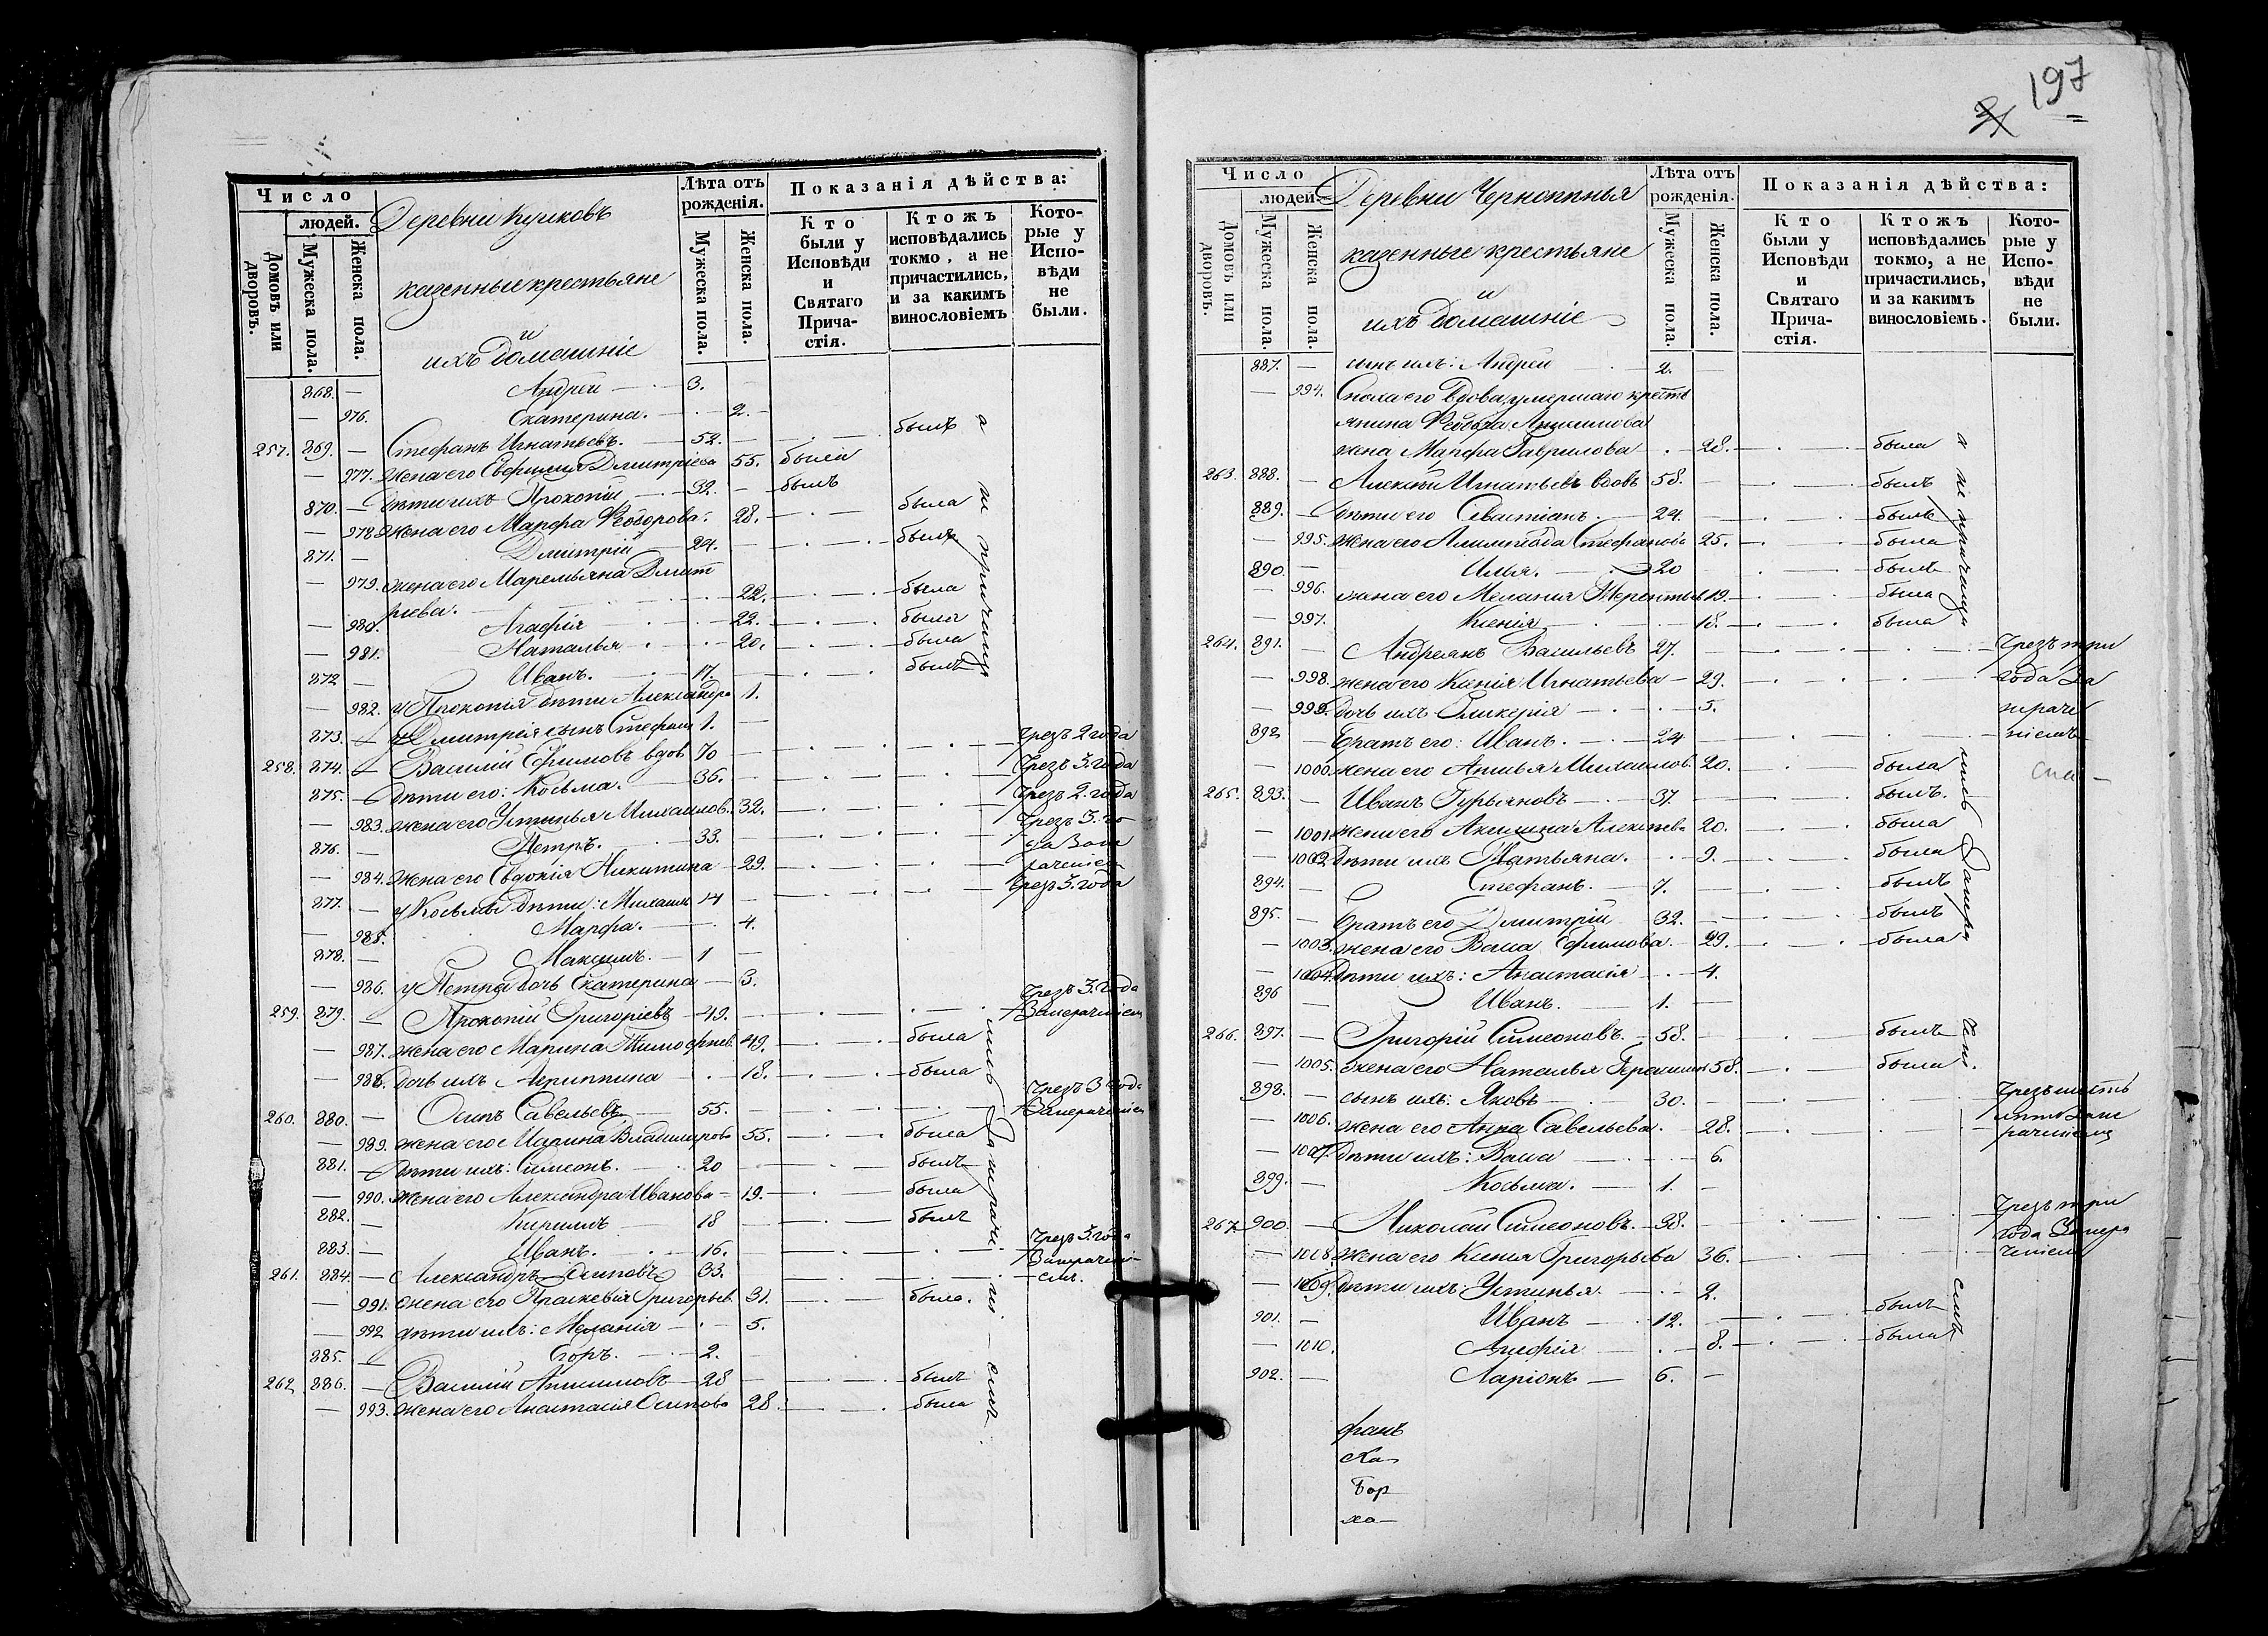 Число
людей.
Домовъ или дворовъ.
Мужеска пола.
Женска пола.
Деревни Кулковъ
казенные крестьяне
и
ихъ домашніе
Лѣта отъ рожденія.
Мужеска пола.
Женска пола.
Показанія дѣйства:
Кто были у Исповѣди и Святаго Прича-стія.
Ктожъ исповѣдались токмо, а не причастились, и за какимъ винословіемъ
Кото-рые у Испо-вѣди не были.
868. — Андрей — 3.
— 976. Екатерина. — 2.
257. 869. — Стефанъ Игнатьевъ. — 52. — былъ
— 977. жена его Евфимия Дмитріева 55. была
870. — дѣти ихъ Прокопій — 32. — былъ
— 978 жена его Марфа Ѳедорова. 28. — была
871. — Дмитрій — 24. — былъ
— 979. жена его Маремьяна Дмит
ріева. — 22. — была
— 980. Агафія — 22. — была
— 981. Наталья — 20. — была
872 — Иванъ. — 17. — былъ
— 982. у Прокопія дѣти Александра 1.
873. — у Дмитрія сынъ Стефанъ 1. —
258. 874. — Василій Ефимовъ вдов. 70 — чрезъ 2 года
875. — дѣти его: Косьма. — 36. — чрезъ 3. года
— 983. жена его Устинья Михайлов. 32. — чрезъ 2. года
876. — Петръ. — 33. — чрезъ 3. го
— 984. жена его Евдокія Никитина — 29. —
877. — у Косьмы дѣти: Михаилъ 14 — чрезъ 3. года
— 985. Марфа. — 4.
878. — Максимъ. — 1 —
— 986. у Петра дочь Екатерина — 3.
259. 879. — Прокопій Григоріевъ — 49. — чрезъ 3. года
— 987. жена его Марина Тимофеев. 49. — была
— 988. дочь ихъ Агриппина — 18. — была
260. 880. — Осипъ Савельевъ — 55. — чрезъ 3 года
— 989. жена его Марина Владимирова 55. — была
881. — дѣти ихъ: Симеонъ. — 20 — былъ
— 990. жена его Александра Иванова — 19. — была
882. — Кирилъ — 18 — былъ
883. — Иванъ. — 16. — чрезъ 3. года
261. 884. — Александръ Осиповъ 33.
— 991. жена его Праскевія Григорьев. 31. — была.
— 992 дѣти ихъ: Меланія — 5.
885. — Егоръ. — 2.
262. 886. — Василій Анисимовъ — 28 — былъ
— 993. жена его Анастасія Осипова 28. — была
197
Число
людей.
Домовъ или дворовъ.
Мужеска пола.
Женска пола.
казенные крестьяне
и
ихъ домашніе
Лѣта отъ рожденія.
Мужеска пола.
Женска пола.
Показанія дѣйства:
Кто были у Исповѣди и Святаго Прича-стія.
Ктожъ исповѣдались токмо, а не причастились, и за какимъ винословіемъ.
Кото-рые у Испо-вѣди не были.
887. — сынъ ихъ: Андрей — 2. —
— 994. Сноха его вдова, умершаго кресть
янина Ѳедора Анисимова
жена Марфа Гаврилова — 28. — была
263. 888. — Алексѣй Игнатьевъ вдовъ 58. — былъ
889. — дѣти его Севастіанъ. — 24. — былъ
— 995. жена его Стефанова 25. — была
890. — Илья. — 20 — былъ
— 996. жена его Меланія Терентьев 19. — была
— 997. Ксенія — 18. — была
264. 891. — Андреянъ Васильевъ 27. — Чрезъ три
— 998. жена его Ксенія Игнатьева — 29. —
— 999. дочь ихъ Гликерія — 5.
892 — братъ его: Иванъ. — 24
— 1000. жена его Михаилов. 20. — была
265. 893. — Иванъ Гурьяновъ — 37. — былъ.
— 1001. жена его Акилина Алексѣева 20. — была
— 1002. дѣти ихъ Татьяна. — 9. — была
894. — Стефанъ. — 7. — былъ
895. — братъ его Дмитрій 32. — былъ
— 1003. жена его Васса Ефимова. — 29. — была
— 1004. дѣти ихъ: Анастасія — 4.
896 — Иванъ. — 1. —
266. 897. — Григорій Симеоновъ. — 58. — былъ
— 1005. жена его Наталья Герасимов 58. — была
898. — сынъ ихъ: Яковъ — 30. — Чрезъ шесть
— 1006. жена его Анна Савельева. — 28. —
— 1007. дѣти ихъ: Васса — 6.
899. — Косьма. — 1. —
267. 900. — Николай Симеоновъ. — 38. — Чрезъ три
— 1008. жена его Ксенія Григорьева 36. —
— 1009. дѣти ихъ: Устинья — 2.
901. — Иванъ — 12. — былъ
— 1010. — 8. — была
902. — Ларіонъ — 6. —
франъ
Ка
Бор
ха—